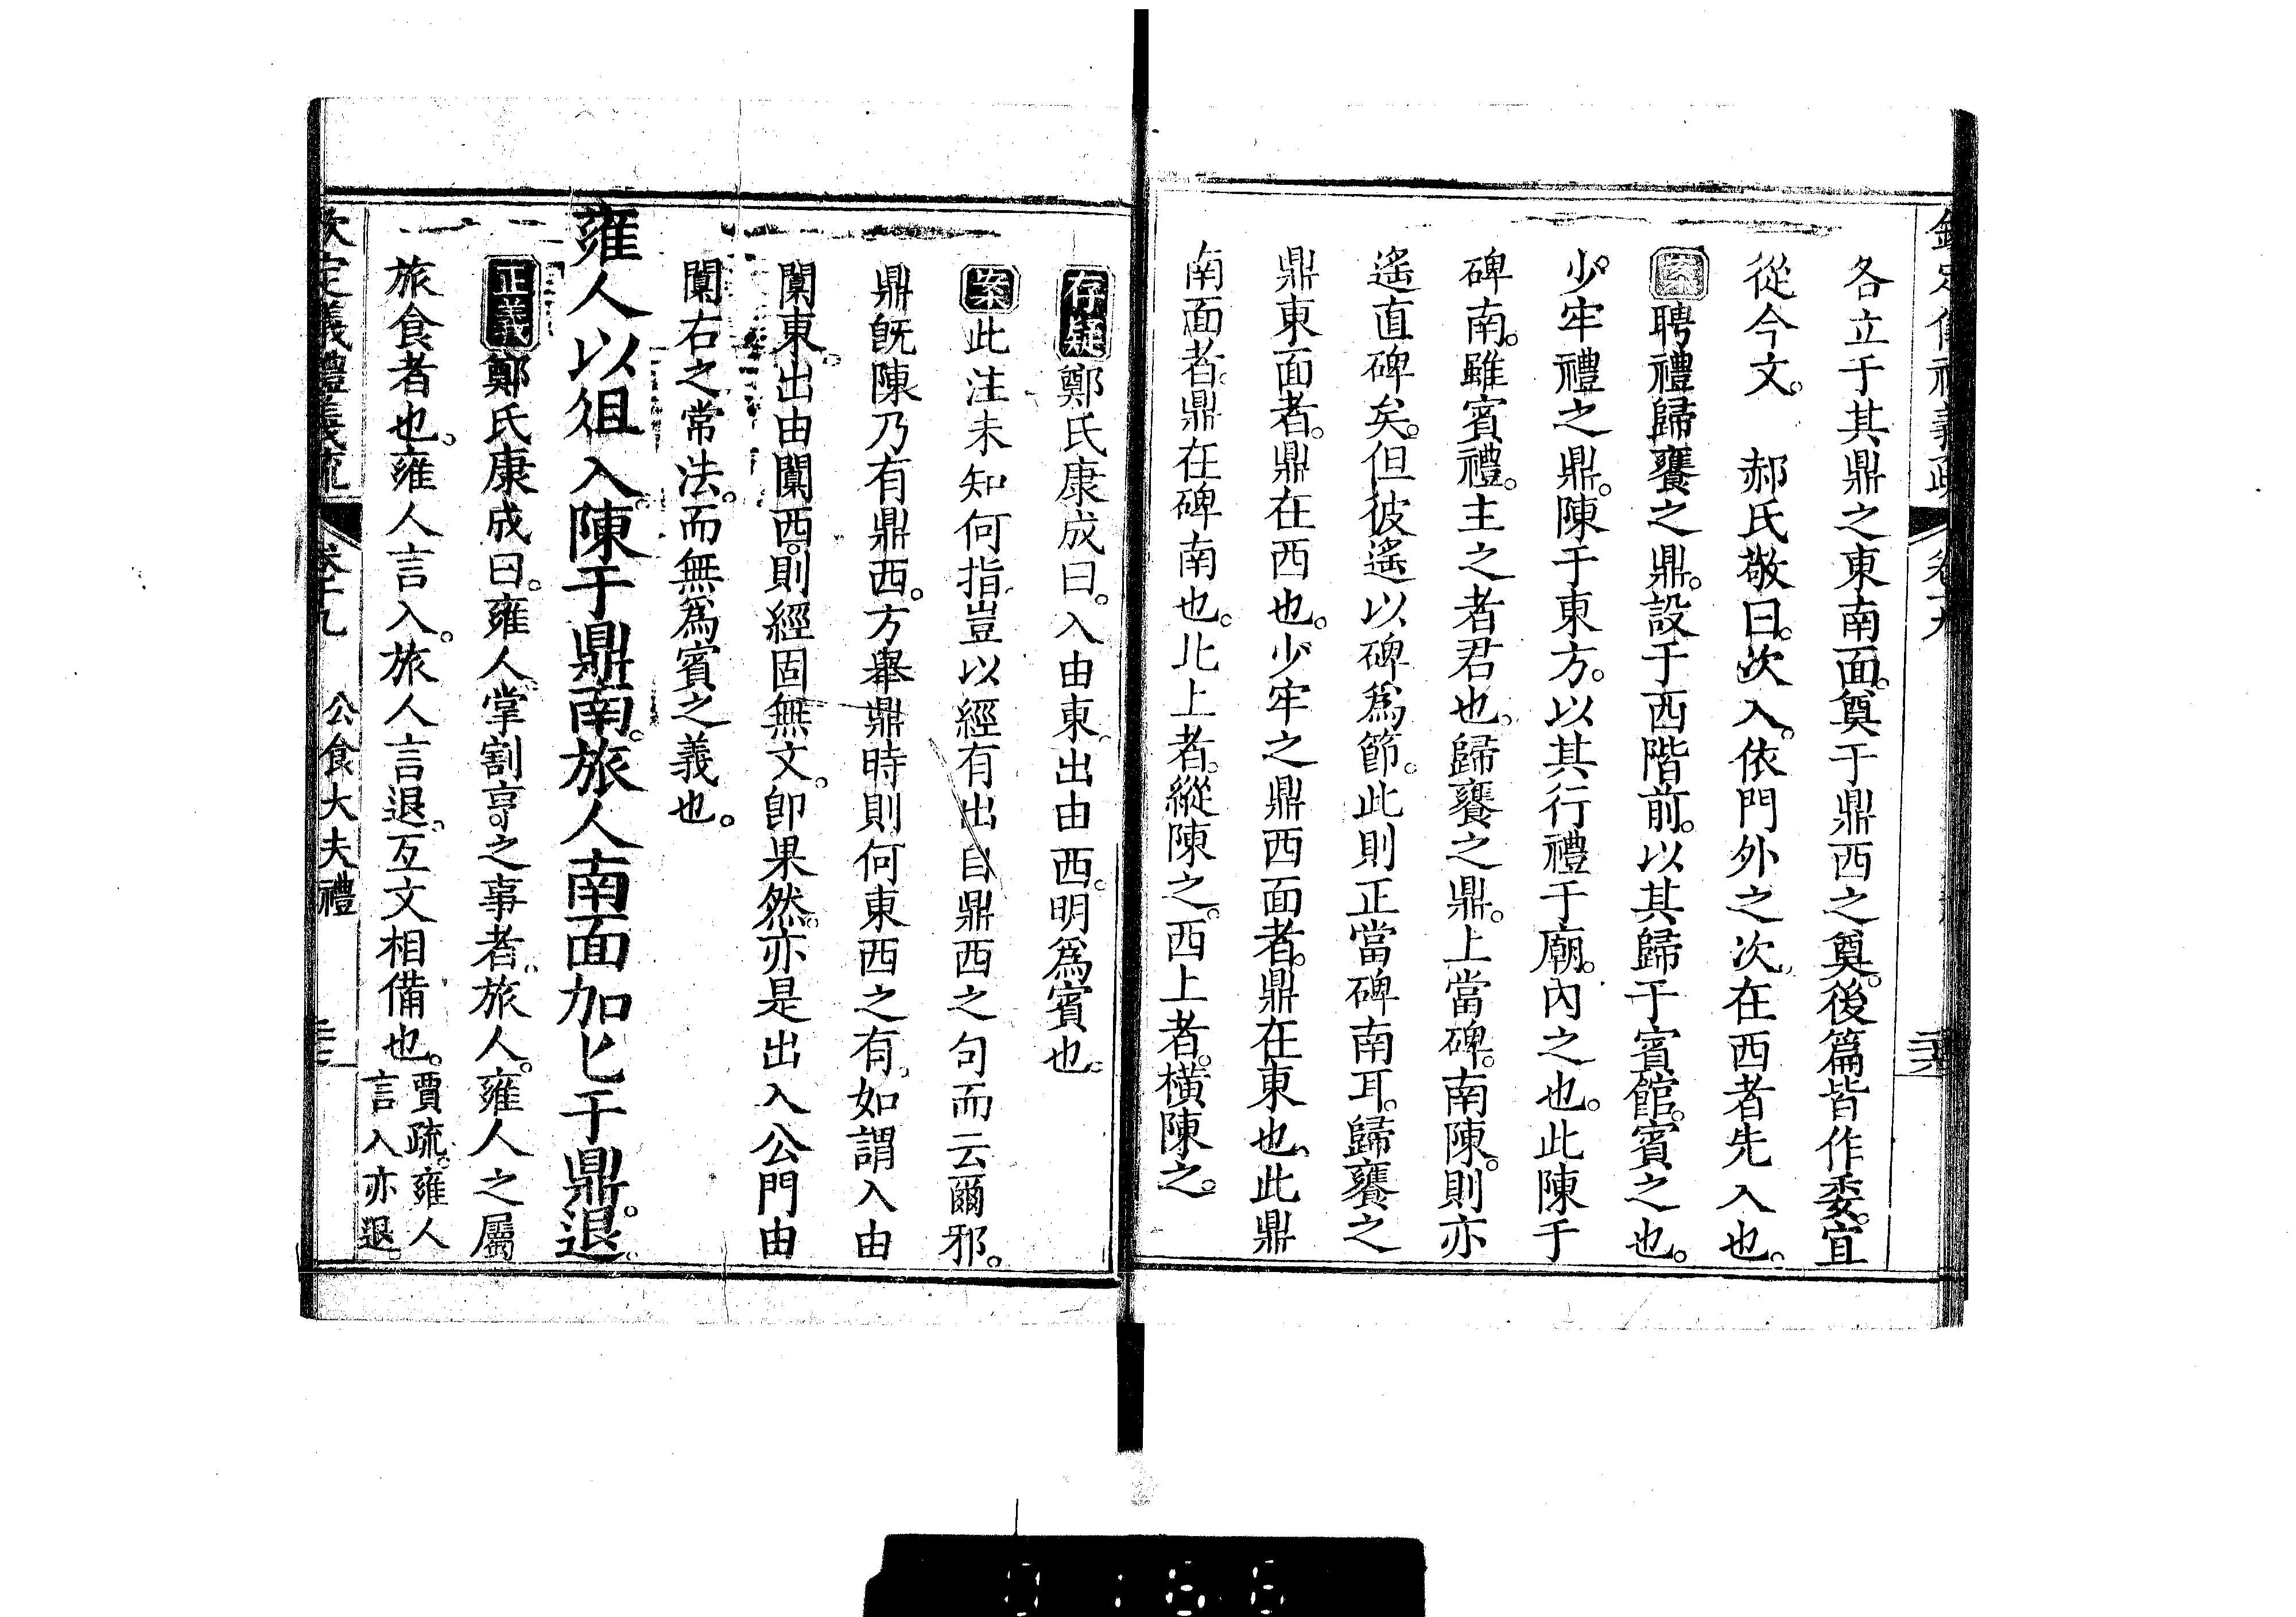 各立于其鼎之東南面。奠于鼎西之奠。後篇皆作委。宜
從今文。　郝氏敬曰。次入。依門外之次。在西者先入也。
案聘禮歸饔之鼎。設于西階前。以其歸于賓館。賓之也。
少牢禮之鼎。陳于東方。以其行禮于廟。內之也。此陳于
碑南。雖賓禮。主之者君也。歸饔之鼎。上當碑。南陳。則亦
遙直碑矣。但彼遙以碑爲節。此則正當碑南耳。歸饔之
鼎東面者。鼎在西也。少牢之鼎西面者。鼎在東也。此鼎
南面者。鼎在碑南也。北上者。縱陳之。西上者。橫陳之。
存疑鄭氏康成曰。入由東。出由西。明爲賓也。
案此注未知何指。豈以經有出自鼎西之句而云爾邪。
鼎旣陳乃有鼎西。方舉鼎時則何東西之有。如謂入由
闑東。出由闑西。則經固無文。卽果然。亦是出入公門由
闑右之常法。而無爲賓之義也。
雍人以俎入。陳于鼎南。旅人南面加匕于鼎。退。
正義鄭氏康成曰。雍人。掌割亨之事者。旅人。雍人之屬
旅食者也。雍人言入。旅人言退。互文相備也。賈疏。雍人
言入亦退。
欽定儀禮義疏　卷十九　公食大夫禮